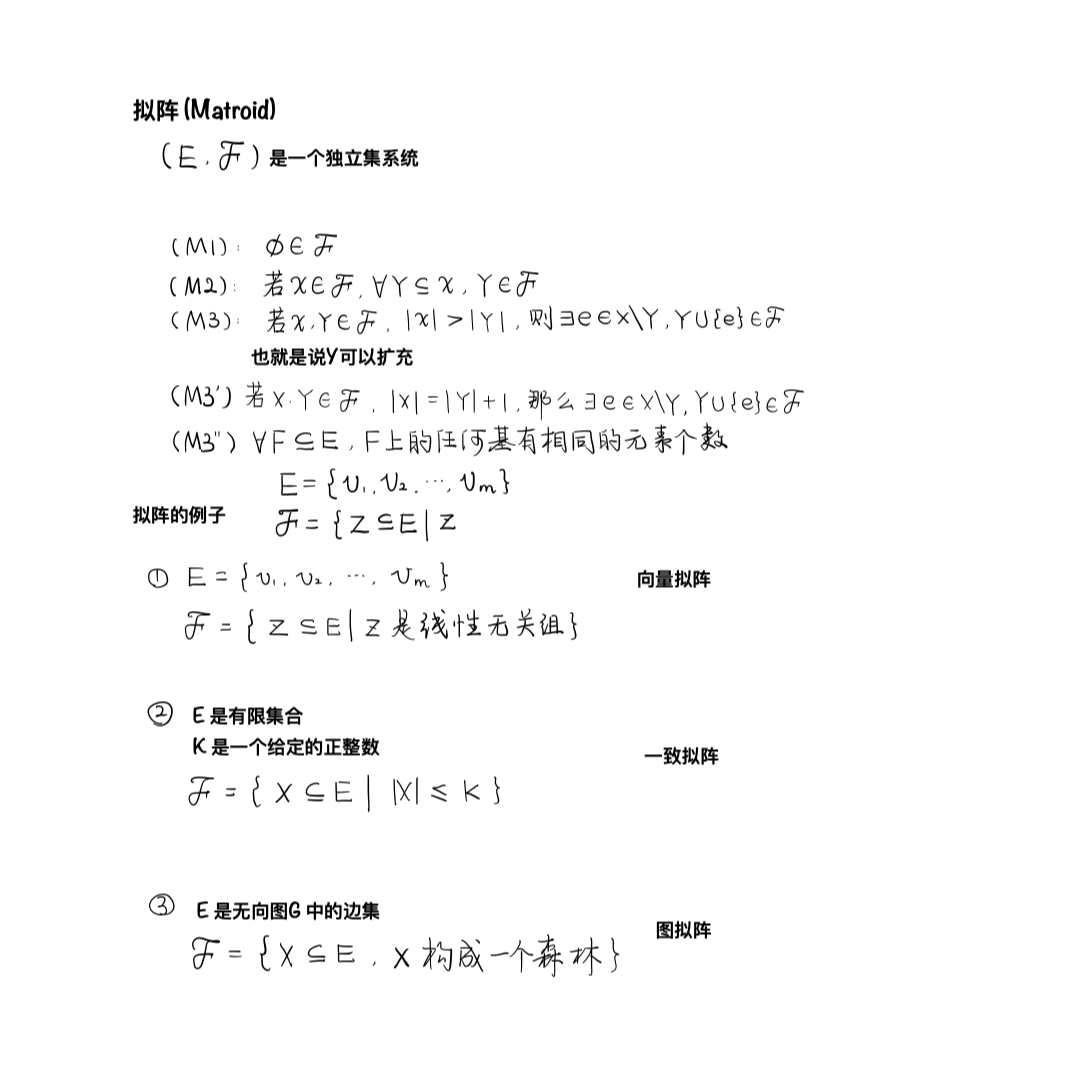 拟阵 (Matroid)
(E, ℱ) 是一个独立集系统
(M1): ϕ∈ℱ
(M2): 若X∈ℱ, ∀Y⊆X, Y∈ℱ
(M3): 若X,Y∈ℱ, |X|>|Y|, 则∃e∈X\Y, Y∪{e}∈ℱ
也就是说Y可以扩充
(M3') 若X,Y∈ℱ, |X|=|Y|+1, 那么∃e∈X\Y, Y∪{e}∈ℱ
(M3") ∀F⊆E, F上的任何基有相同的元素个数
E={v₁, v₂, ⋯, vₘ}
拟阵的例子 ℱ={Z⊆E|Z
① E={v₁, v₂, ⋯, vₘ} 向量拟阵
ℱ={Z⊆E|Z是线性无关组}
② E 是有限集合
K 是一个给定的正整数 一致拟阵
ℱ={X⊆E| |X|≤K}
③ E 是无向图G 中的边集
图拟阵
ℱ={X⊆E, X构成一个森林}